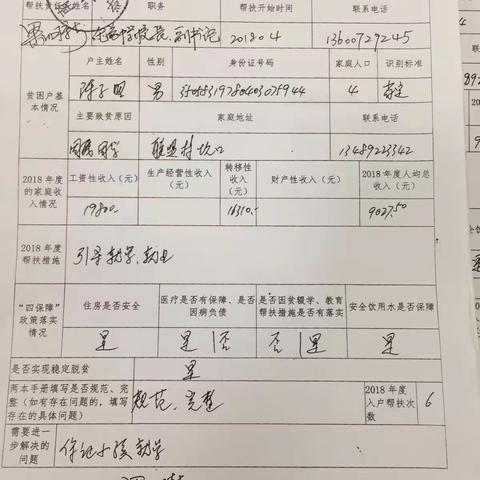 帮扶责任人姓名 职务 帮扶开始时间 联系电话
校长、副书记 201804 13600729245
贫困户基本情况
户主姓名 性别 身份证号码 家庭人口 识别标准
男 4
主要致贫原因 家庭地址 联系电话
因学 村坑口 13489223342
2018年度的家庭收入情况
工资性收入(元) 生产经营性收入(元) 转移性收入(元) 财产性收入(元) 2018年度人均总收入(元)
19800.- 16310.- 9027.50
2018年度帮扶措施
引导就学、就业
“四保障”政策落实情况
住房是否安全 医疗是否有保障、是否因病负债 是否因贫辍学、教育帮扶措施是否有落实 安全饮用水是否保障
是 是|否 否|是 是
是否实现稳定脱贫 是
两本手册填写是否规范、完整(如有存在问题的,填写存在的具体问题) 规范、完整 2018年度入户帮扶次数 6
需要进一步解决的问题 小孩就学